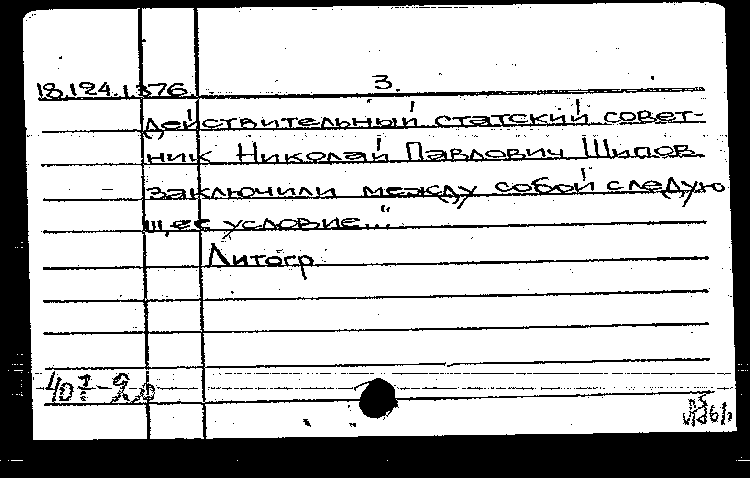 18.124.1.376. 3.
действительный статский совет-
ник Николай Павлович Шипов
заключили между собой следую
щее условие..."
Литогр.